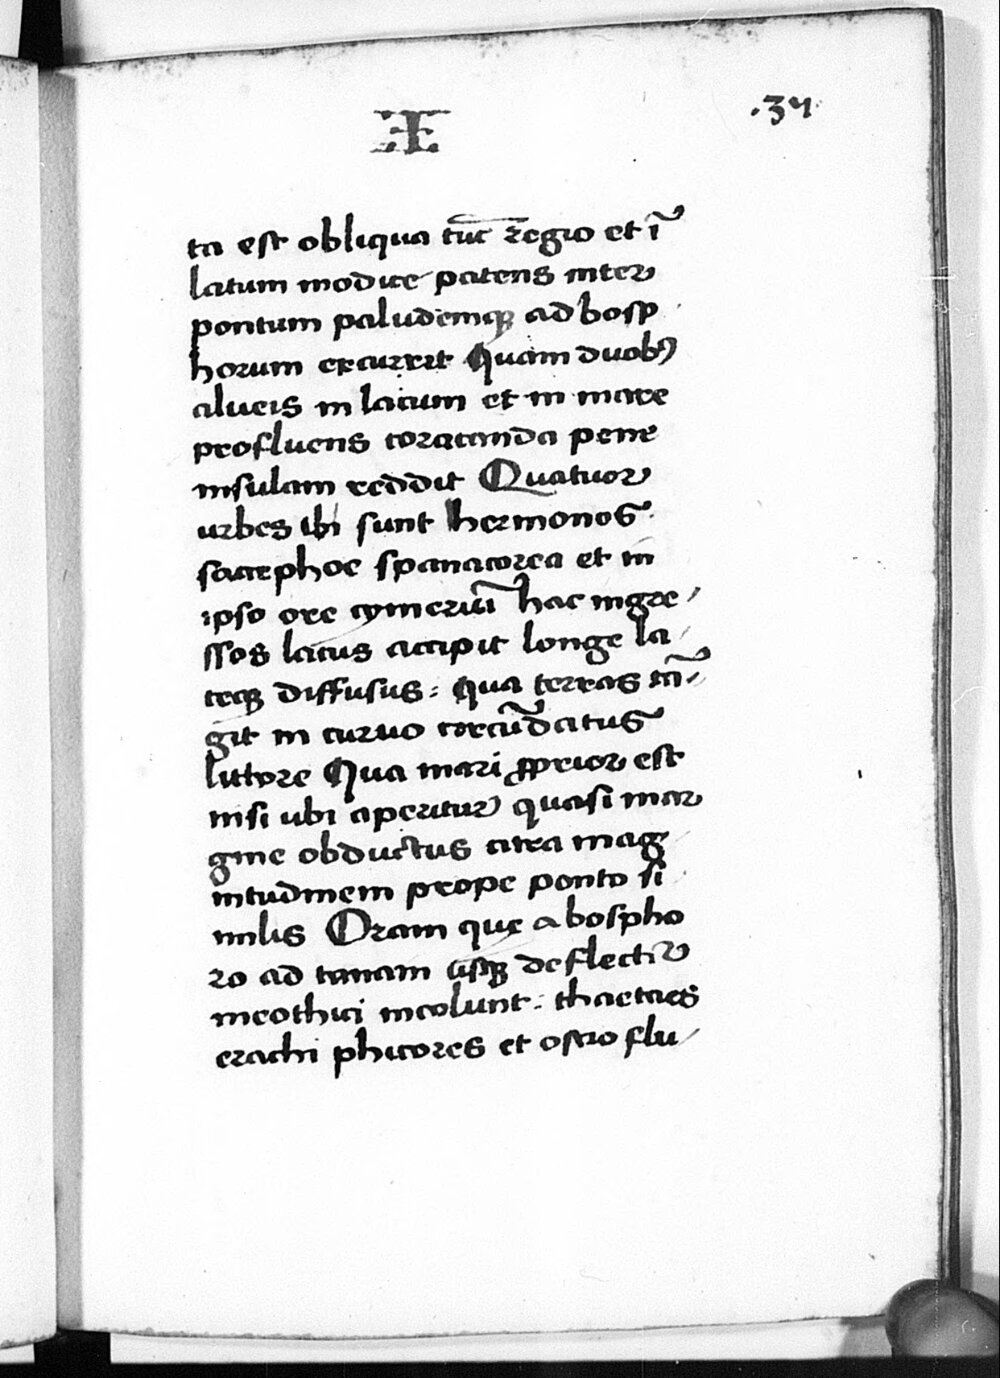 .34.
ta est obliqua tūc regio et ī
latum modice patens inter
pontum paludemqꝫ ad bosp
horum excurrit Quam duobꝰ
alueis in lacum et in mare
profluens coracanda pene
insulam reddit Quatuor
urbes ibi sunt hermonos
sacephoe spanacorea et in
ipso ore cymeriū hac ingre
ssos lacus accipit longe la
teqꝫ diffusus: qua terras tā
git in curuo circūdatus
littore Qua mari ꝓprior est
nisi ubi aperitur quasi mar
gine obductus citra mag
nitudinem prope ponto si
milis Oram quę a bospho
ro ad tanam usqꝫ deflectir
meothici incolunt: thaetaes
erachi phicores et ostio flu